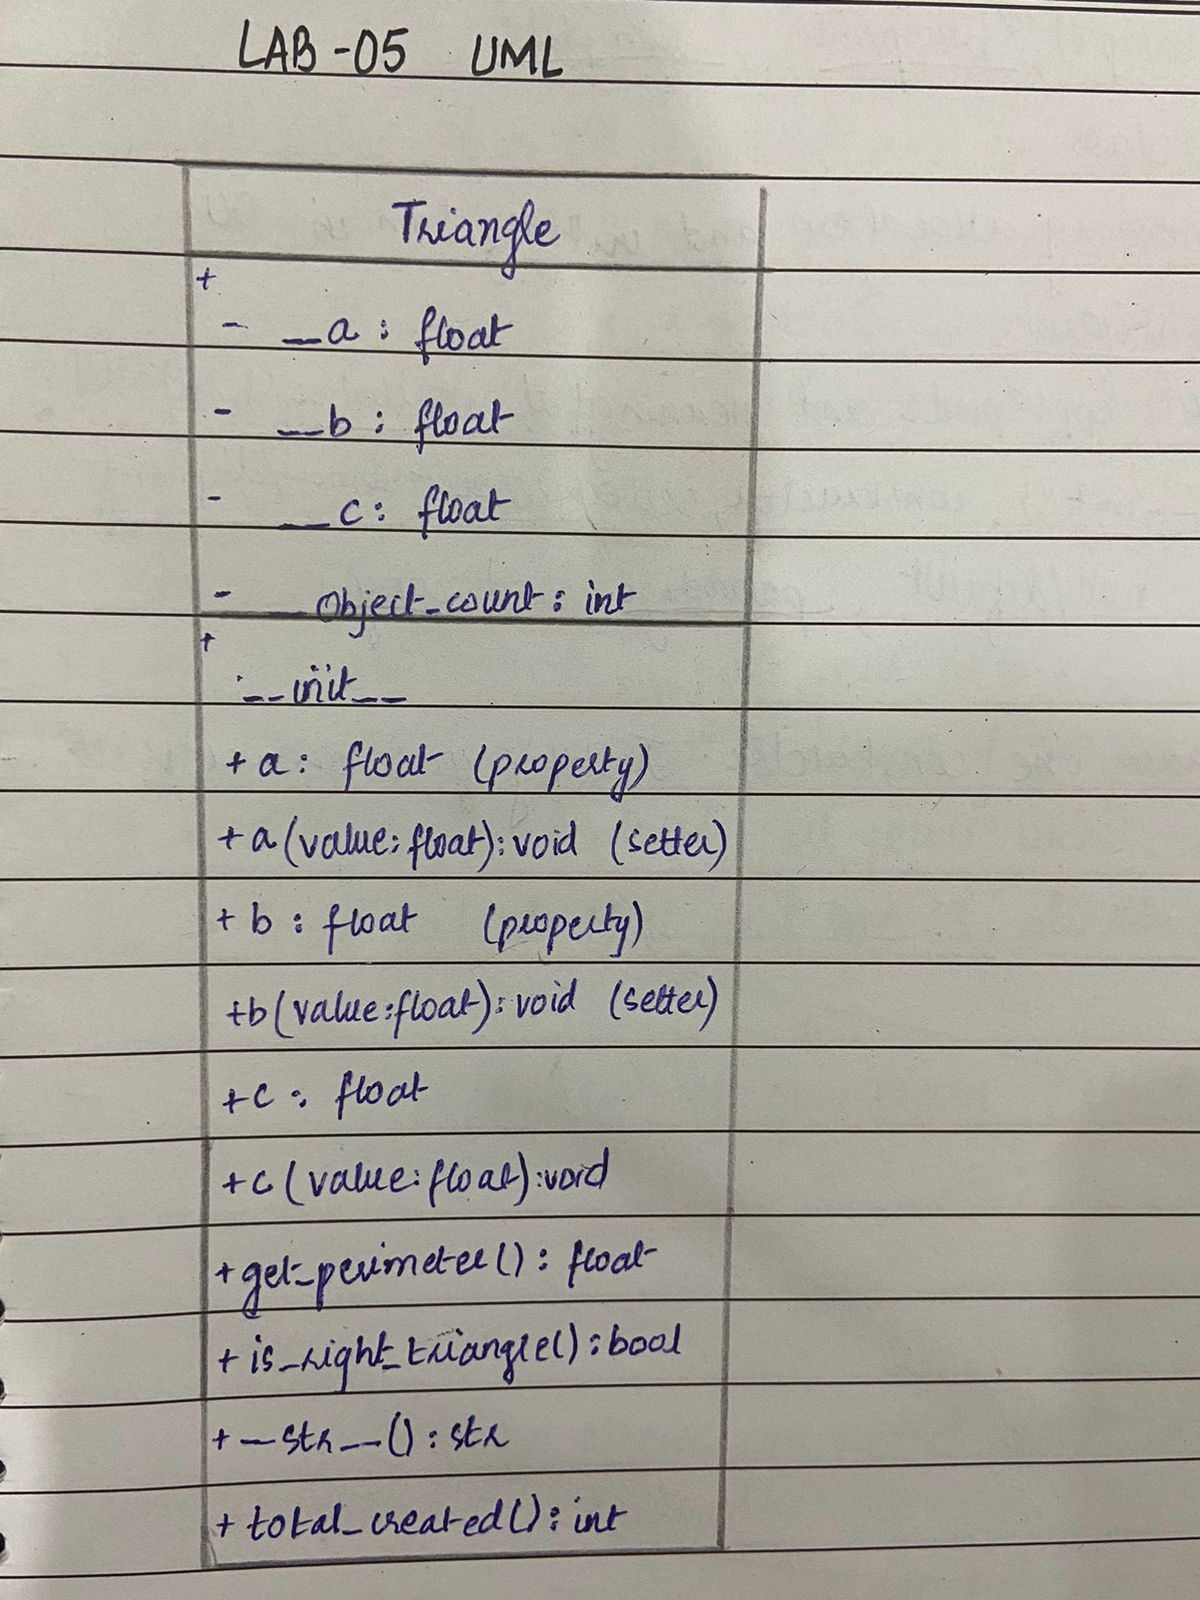 LAB -05 UML
Triangle
+
- __a : float
- __b : float
- __c : float
- __object_count : int
+
__init__
+ a : float (property)
+ a (value: float) : void (setter)
+ b : float (property)
+b (value:float) : void (setter)
+c : float
+c (value: float) :void
+ get_perimeter() : float
+ is_right_triangle() : bool
+ __str__() : str
+ total_created() : int